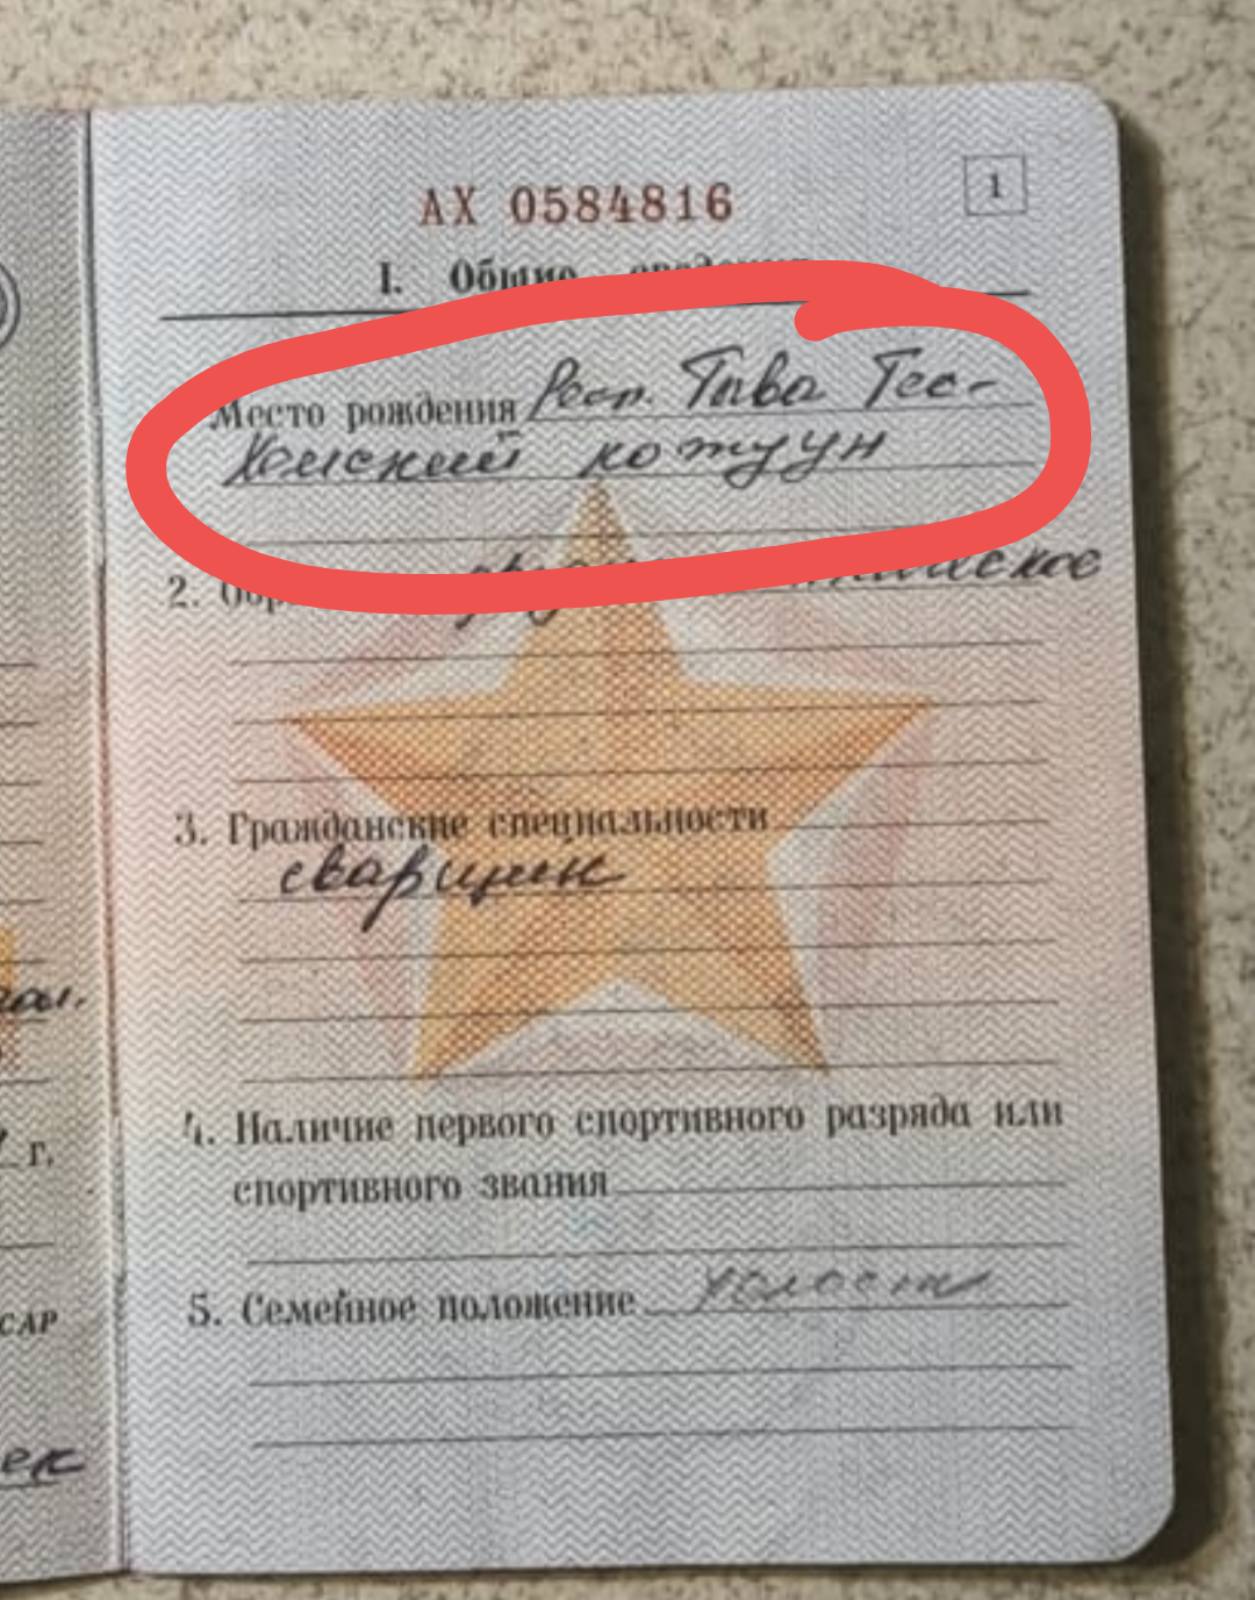 1
АХ 0584816
I. Общие сведения
Место рождения Респ. Тыва Тес-
Хемский кожуун
2.
3. Гражданские специальности
сварщик
4. Наличие первого спортивного разряда или
спортивного звания
5. Семейное положение холост
г.